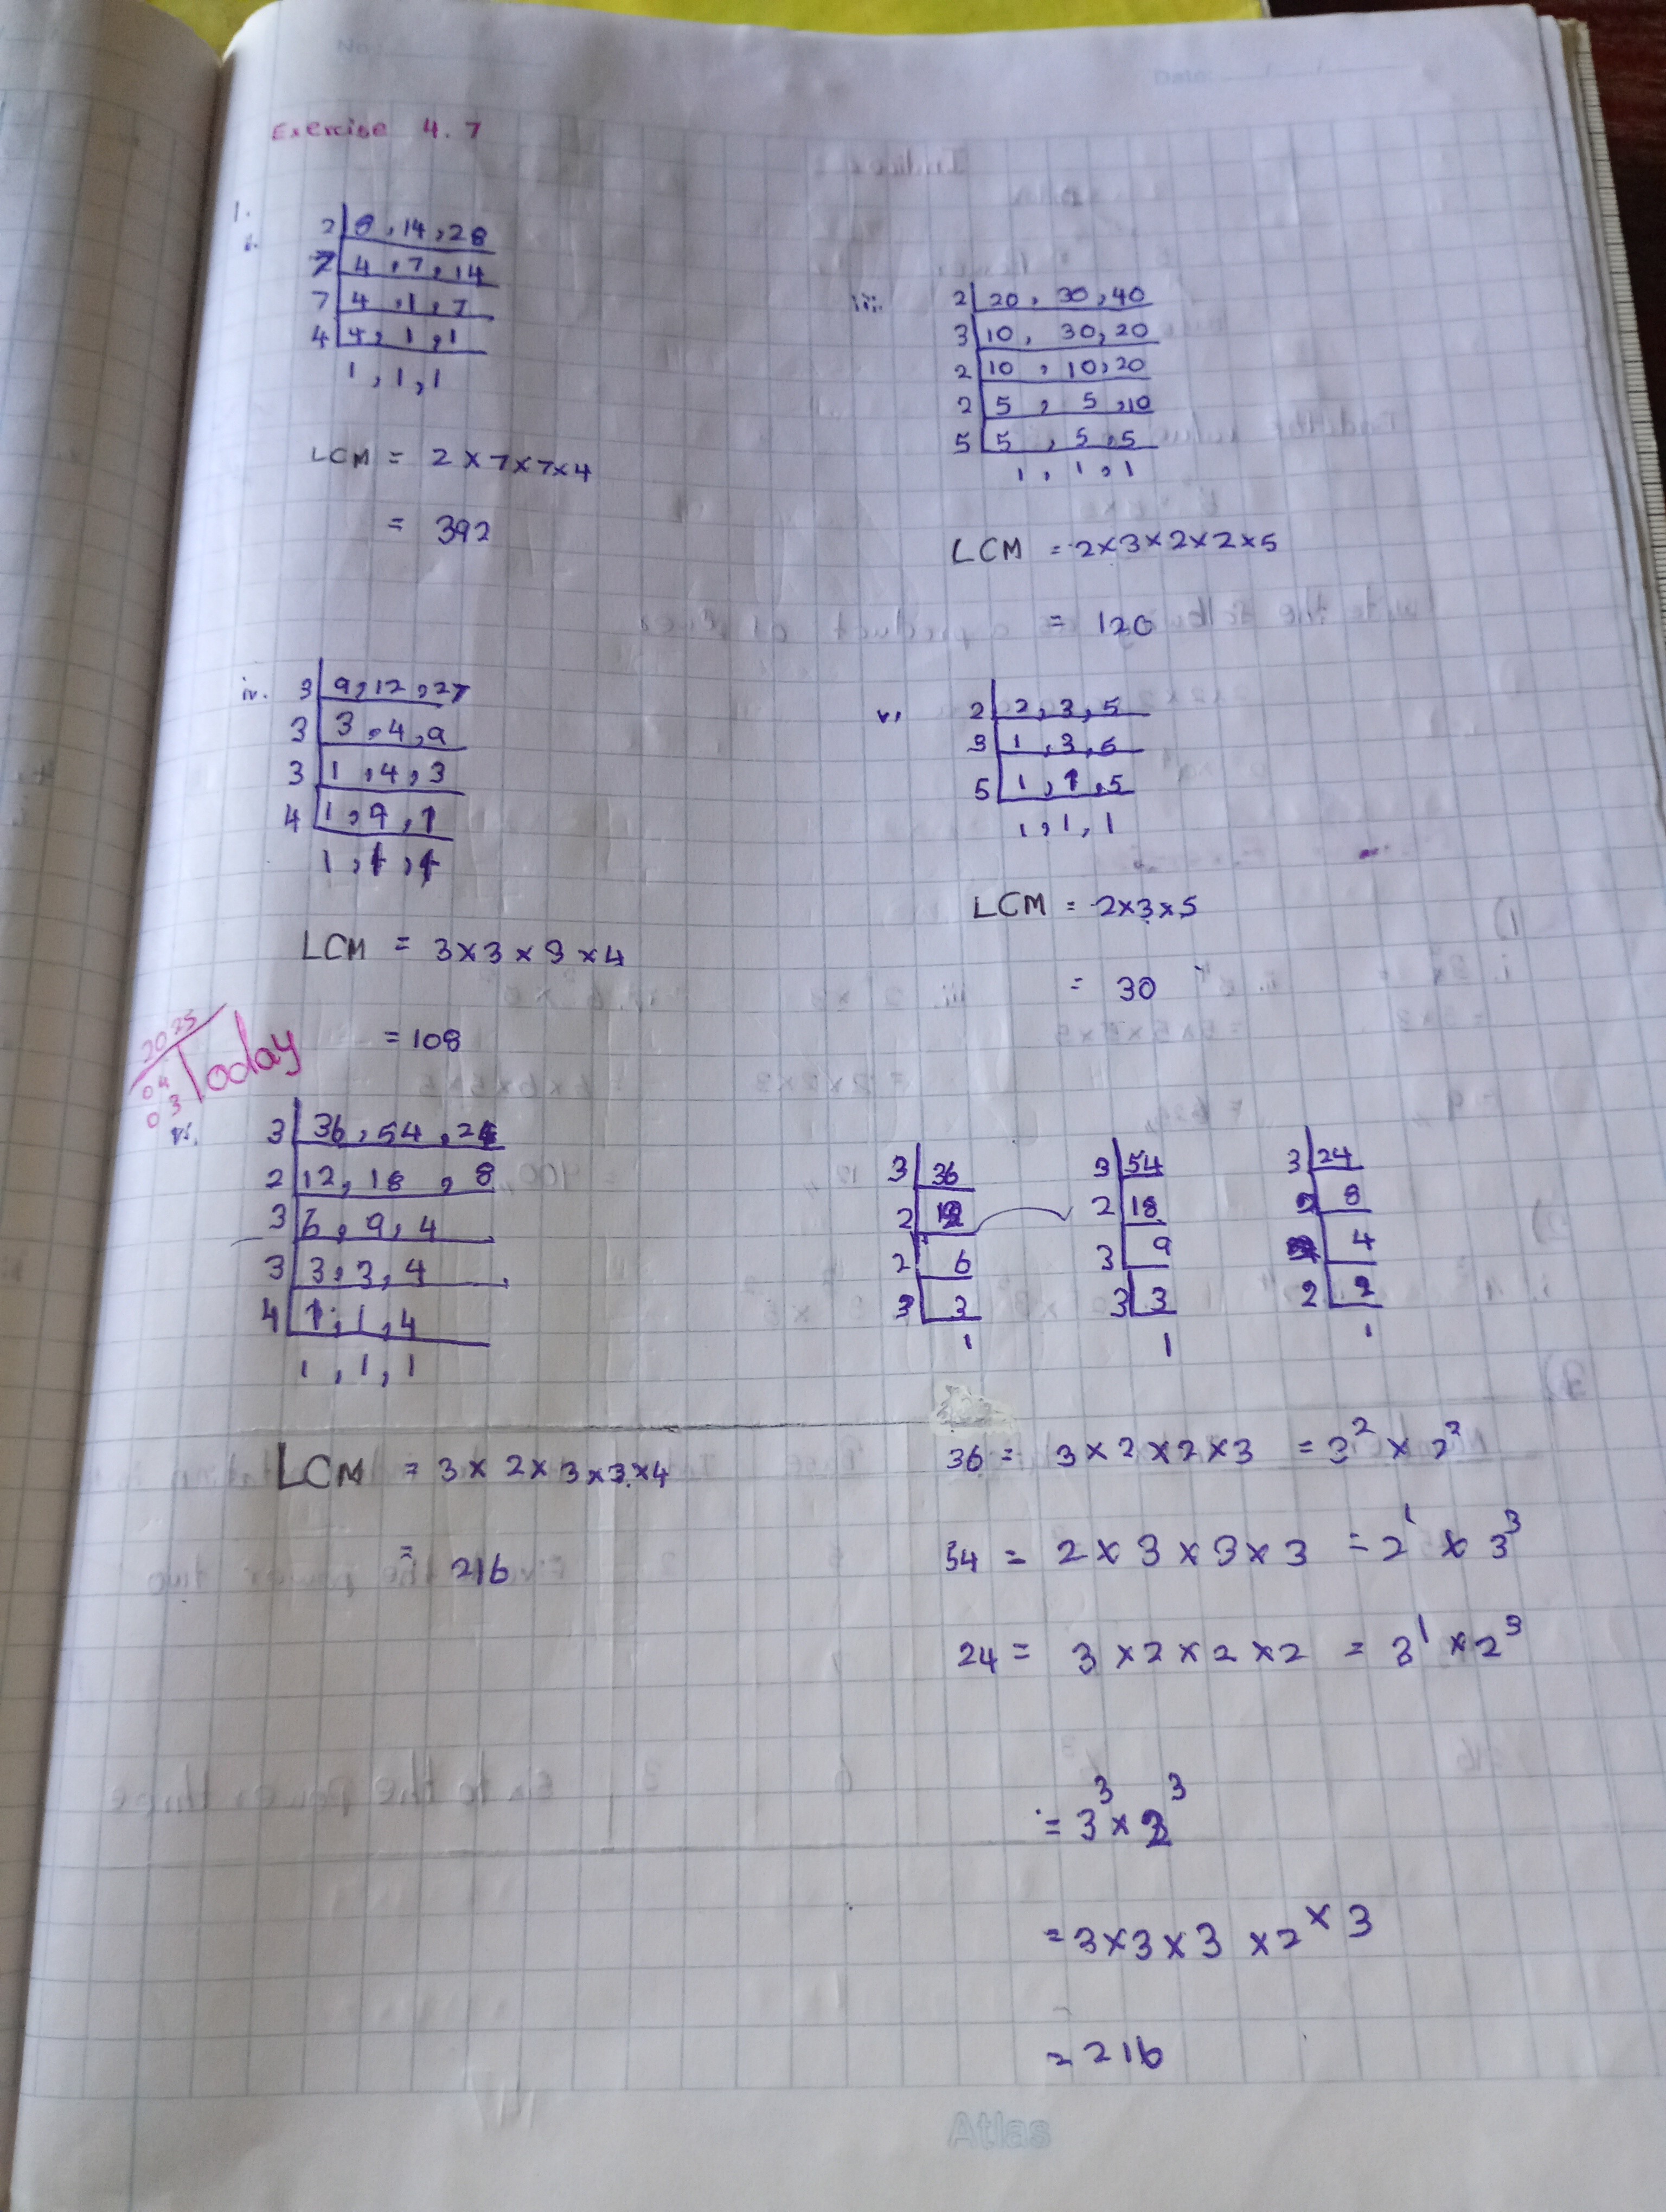 No:
Date:
Exercise 4.7
1.
i.
2 | 8, 14, 28
7 | 4, 7, 14
7 | 4, 1, 7
4 | 4, 1, 1
1, 1, 1
LCM = 2 × 7 × 7 × 4
= 392
iii.
2 | 20, 30, 40
3 | 10, 30, 20
2 | 10, 10, 20
2 | 5, 5, 10
5 | 5, 5, 5
1, 1, 1
LCM = 2 × 3 × 2 × 2 × 5
= 120
iv.
3 | 9, 12, 27
3 | 3, 4, 9
3 | 1, 4, 3
4 | 1, 4, 1
1, 1, 1
LCM = 3 × 3 × 3 × 4
= 108
v.
2 | 2, 3, 5
3 | 1, 3, 5
5 | 1, 1, 5
1, 1, 1
LCM = 2 × 3 × 5
= 30
2025
04
03
Today
vi.
3 | 36, 54, 24
2 | 12, 18, 8
3 | 6, 9, 4
3 | 3, 3, 4
4 | 1, 1, 4
1, 1, 1
LCM = 3 × 2 × 3 × 3 × 4
= 216
3 | 36
2 | 12
2 | 6
3 | 3
1
3 | 54
2 | 18
3 | 9
3 | 3
1
3 | 24
2 | 8
4
2 | 2
1
36 = 3 × 2 × 2 × 3 = 3² × 2²
54 = 2 × 3 × 3 × 3 = 2¹ × 3³
24 = 3 × 2 × 2 × 2 = 3¹ × 2³
= 3³ × 2³
= 3 × 3 × 3 × 2 × 3
= 216
Atlas